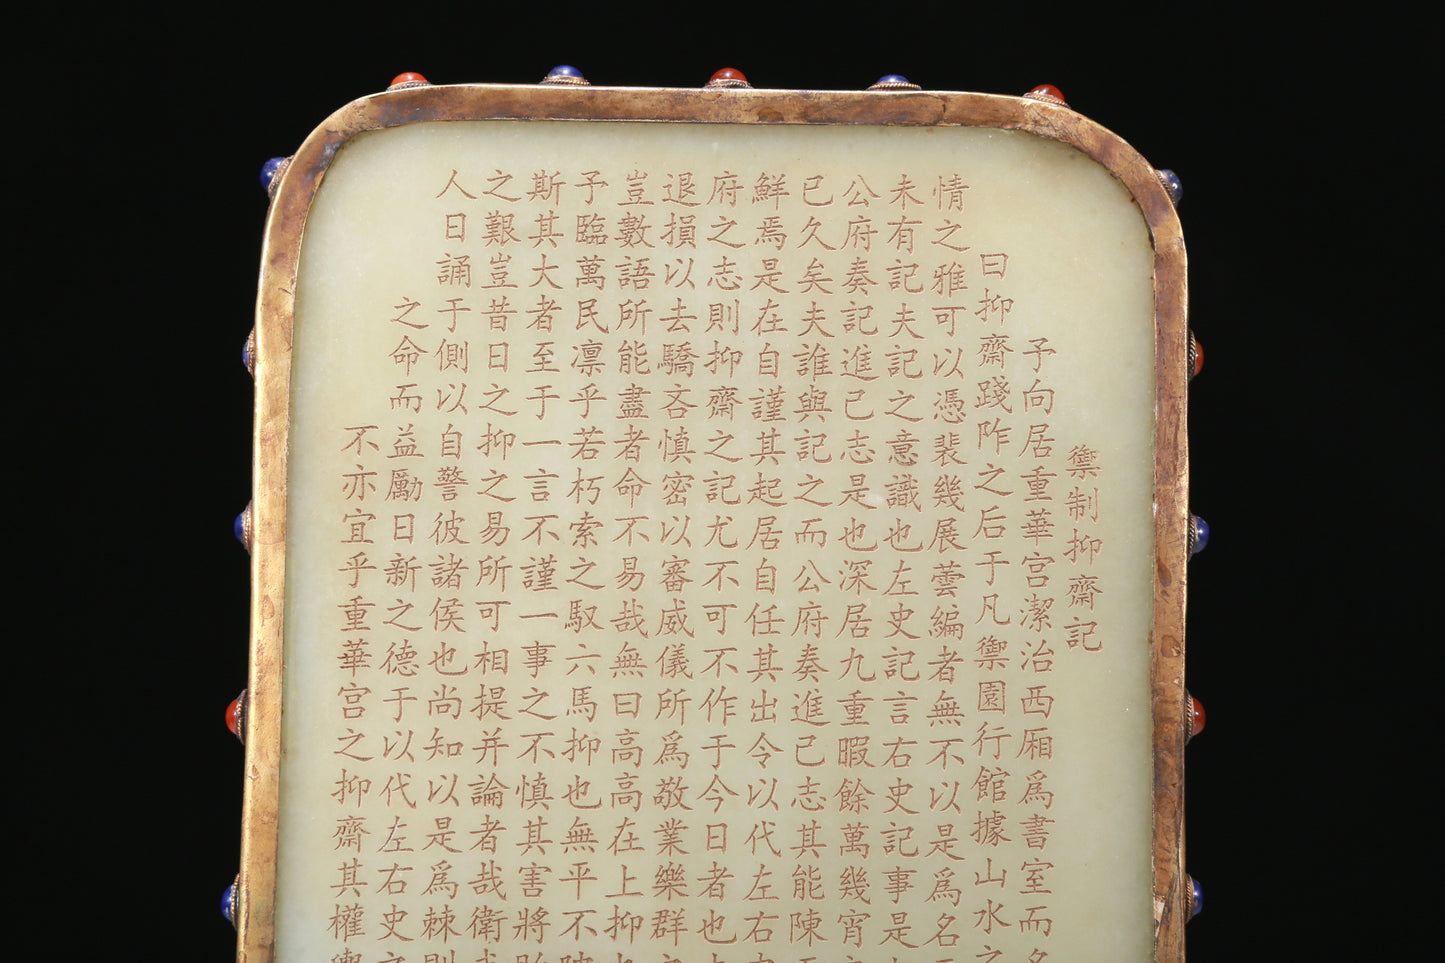 禦制抑齋記
予向居重華宮潔治西厢爲書室而名
曰抑齋踐阼之后于凡禦園行館據山水之
情之雅可以憑裴幾展蕓編者無不以是爲名
未有記夫記之意識也左史記言右史記事是
公府奏記進己志是也深居九重暇餘萬幾宵
已久矣夫誰與記之而公府奏進已志其能陳
鮮焉是在自謹其起居自任其出令以代左右
府之志則抑齋之記尤不可不作于今日者也
退損以去驕吝慎密以審威儀所爲敬業樂群
豈數語所能盡者命不易哉無曰高高在上抑
予臨萬民凛乎若朽索之馭六馬抑也無平不
斯其大者至于一言不謹一事之不慎其害將
之艱豈昔日之抑之易所可相提并論者哉衛
人日誦于側以自警彼諸侯也尚知以是爲棘
之命而益勵日新之德于以代左右史
不亦宜乎重華宮之抑齋其權